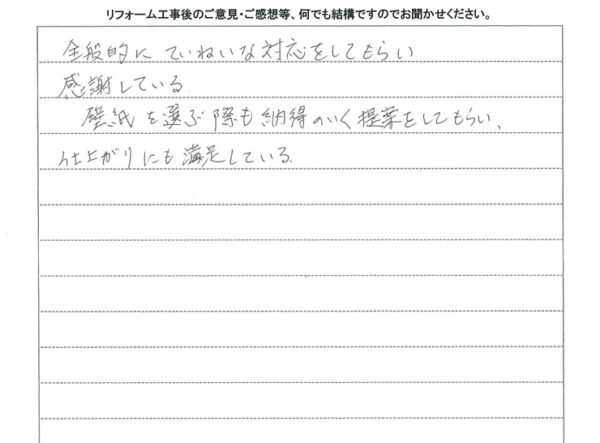 リフォーム工事後のご意見・ご感想等、何でも結構ですのでお聞かせください。
全般的にていねいな対応をしてもらい
感謝している.
壁紙を選ぶ際も納得のいく提案をしてもらい、
仕上がりにも満足している.